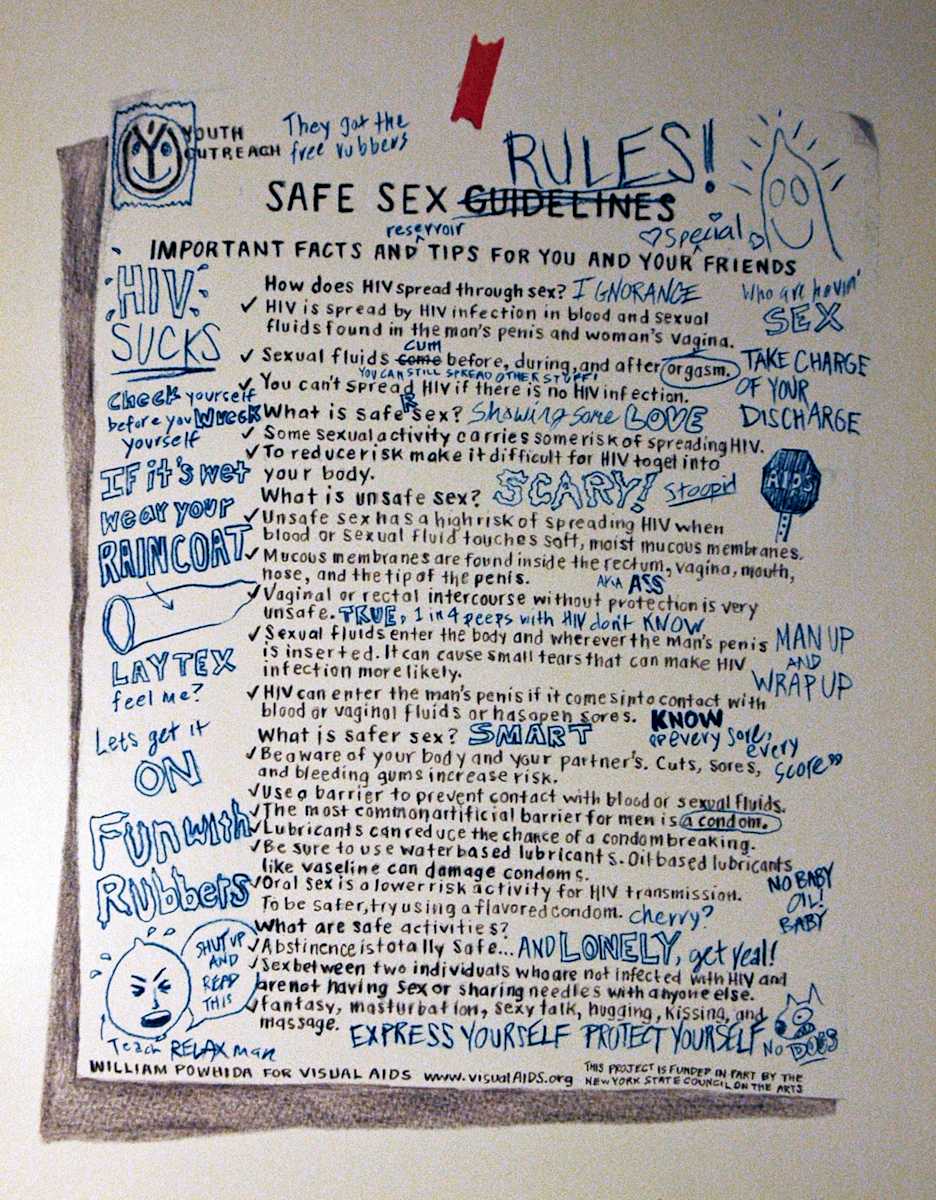 YOUTH
OUTREACH
They got the
free rubbers
RULES!
SAFE SEX GUIDELINES
reservoir
special
IMPORTANT FACTS AND TIPS FOR YOU AND YOUR FRIENDS
HIV
SUCKS
How does HIV spread through sex? IGNORANCE
Who are havin'
SEX
✓ HIV is spread by HIV infection in blood and sexual
fluids found in the man's penis and woman's vagina.
cum
✓ Sexual fluids come before, during, and after orgasm.
TAKE CHARGE
OF YOUR
DISCHARGE
YOU CAN STILL SPREAD OTHER STUFF!
✓ You can't spread HIV if there is no HIV infection.
Check yourself
before you WRECK
yourself
What is safe sex? Showing some LOVE
R
✓ Some sexual activity carries some risk of spreading HIV.
✓ To reduce risk make it difficult for HIV to get into
your body.
IF it's wet
wear your
RAINCOAT
What is unsafe sex? SCARY! Stoopid
AIDS
✓ Unsafe sex has a high risk of spreading HIV when
blood or sexual fluid touches soft, moist mucous membranes.
✓ Mucous membranes are found inside the rectum, vagina, mouth,
nose, and the tip of the penis.
AKA ASS
✓ Vaginal or rectal intercourse without protection is very
unsafe. TRUE, 1 in 4 peeps with HIV don't KNOW
✓ Sexual fluids enter the body and wherever the man's penis
is inserted. It can cause small tears that can make HIV
infection more likely.
MAN UP
AND
WRAP UP
LAYTEX
feel me?
✓ HIV can enter the man's penis if it comes into contact with
blood or vaginal fluids or has open sores.
KNOW
"every sore,
every
score"
Lets get it
ON
What is safer sex? SMART
✓ Be aware of your body and your partner's. Cuts, sores,
and bleeding gums increase risk.
✓ Use a barrier to prevent contact with blood or sexual fluids.
✓ The most common artificial barrier for men is a condom.
✓ Lubricants can reduce the chance of a condom breaking.
✓ Be sure to use water based lubricants. Oil based lubricants
like vaseline can damage condoms.
FUN with
Rubbers
NO BABY
OIL!
BABY
✓ Oral Sex is a lower risk activity for HIV transmission.
To be safer, try using a flavored condom. cherry?
What are safe activities?
✓ Abstinence is totally safe... AND LONELY, get real!
✓ Sex between two individuals who are not infected with HIV and
are not having sex or sharing needles with anyone else.
✓ fantasy, masturbation, sexy talk, hugging, kissing, and
massage.
SHUT UP
AND
READ
THIS
Teach RELAX man
EXPRESS YOURSELF PROTECT YOURSELF
NO DOGS
WILLIAM POWHIDA FOR VISUAL AIDS www.visualAIDS.org
THIS PROJECT IS FUNDED IN PART BY THE
NEW YORK STATE COUNCIL ON THE ARTS